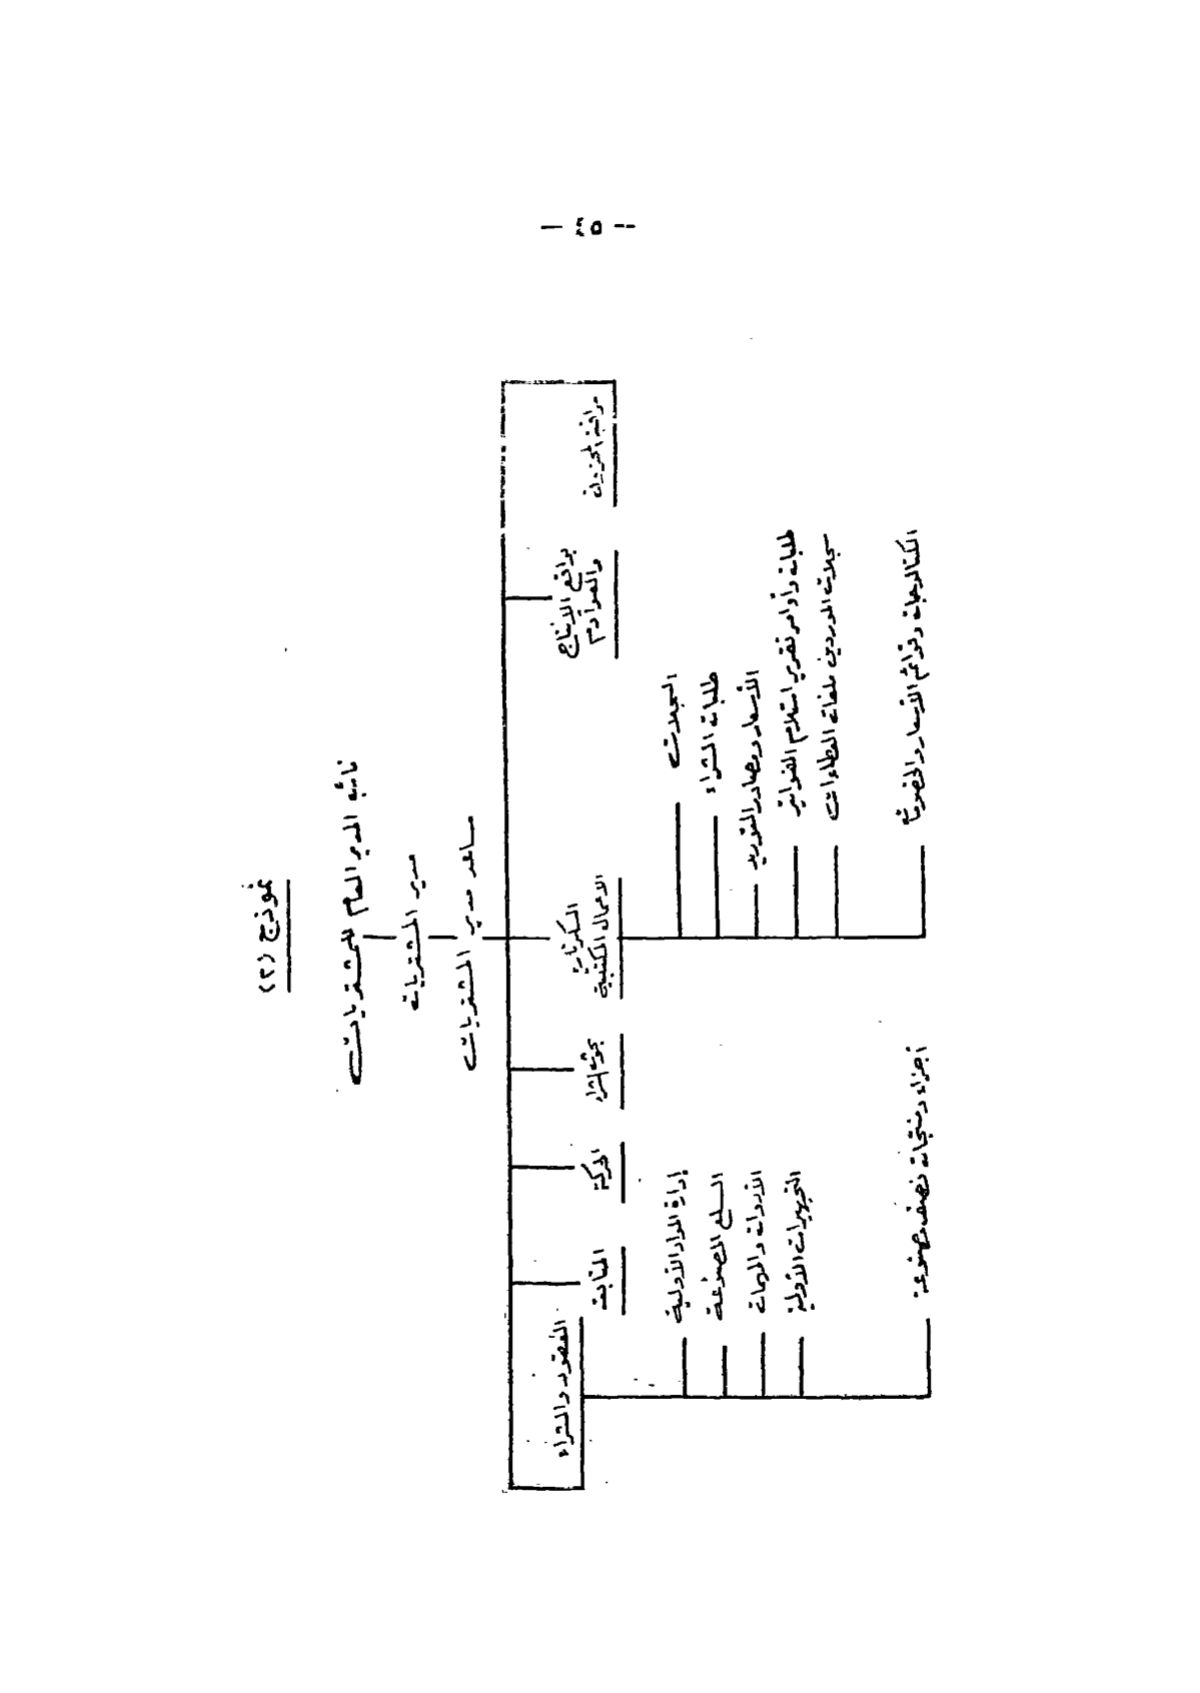 — ٤٥ --
نموذج (٢)
نائب المدير العام للمشتريات
مدير المشتريات
مساعد مدير المشتريات
مراقبة المخزون
برامج الإنتاج
والموادم
السكرتارية
الاعمال الكتبية
بحوث الشراء
الحركة
العقود والشراء
السجلات
طلبات الشراء
الأسعار ومصادر التوريد
طلبات وأوامر تقرير استلام الفواتير
سجلات الموردين ملفات العطاءات
الكتالوجات وقوائم الأسعار والخصومات
إدارة المواد الأولية
السلع المصنوعة
الأدوات والمهمات
التجهيزات الأولية
أجزاء ومنتجات نصف مصنوعة